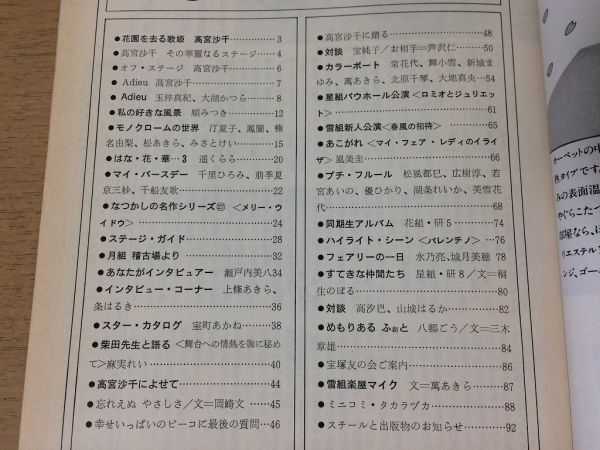 ●花園を去る歌姫 高宮沙千…………3
●高宮沙千 その華麗なるステージ…………4
●オフ・ステージ 高宮沙千…………6
●Adieu 高宮沙千…………7
●Adieu 玉梓真紀、大湖かつら…………8
●私の好きな風景 順みつき…………12
●モノクロームの世界 汀夏子、鳳蘭、榛
名由梨、松あきら、みさとけい…………15
●はな・花・華…3 遥くらら…………20
●マイ・バースデー 千里ひろみ、萠季夏
京三紗、千船友歌…………22
●なつかしの名作シリーズ㉗ <メリー・ウ
イドウ>…………24
●ステージ・ガイド…………28
●月組 稽古場より…………32
●あなたがインタビュアー 瀬戸内美八34
●インタビュー・コーナー 上條あきら、
条はるき…………36
●スター・カタログ 室町あかね…………38
●柴田先生と語る <舞台への情熱を胸に秘め
て>麻実れい…………40
●高宮沙千によせて…………44
●忘れえぬ やさしさ/文=岡崎文…………45
●幸せいっぱいのピーコに最後の質問…46
●高宮沙千に贈る…………48
●対談 宝純子/お相手=芦沢仁…………50
●カラーポート 常花代、舞小雪、新城ま
ゆみ、萬あきら、北原千琴、大地真央…54
●星組バウホール公演<ロミオとジュリエッ
ト>…………61
●雪組新人公演<春風の招待>…………65
●あこがれ <マイ・フェア・レディのイライ
ザ> 風美圭…………66
●プチ・フルール 松風都巳、広樹淳、若
宮あいの、優ひかり、湖条れいか、美雪花代
…………68
●同期生アルバム 花組・研5…………74
●ハイライト・シーン <バレンチノ>…76
●フェアリーの一日 水乃亮、城月美穂 78
●すてきな仲間たち 星組・研8/文=桐
生のぼる…………80
●対談 高汐巴、山城はるか…………82
●めもりある ふぉと 八郷ごう/文=三木
章雄…………84
●宝塚友の会ご案内…………86
●雪組楽屋マイク 文=萬あきら…………87
●ミニコミ・タカラヅカ…………88
●スチールと出版物のお知らせ…………92
ーペットの中
タイプです
の表面温
やぐらこたつ
部屋なら、ほ
リエステル
ンジ、ゴー